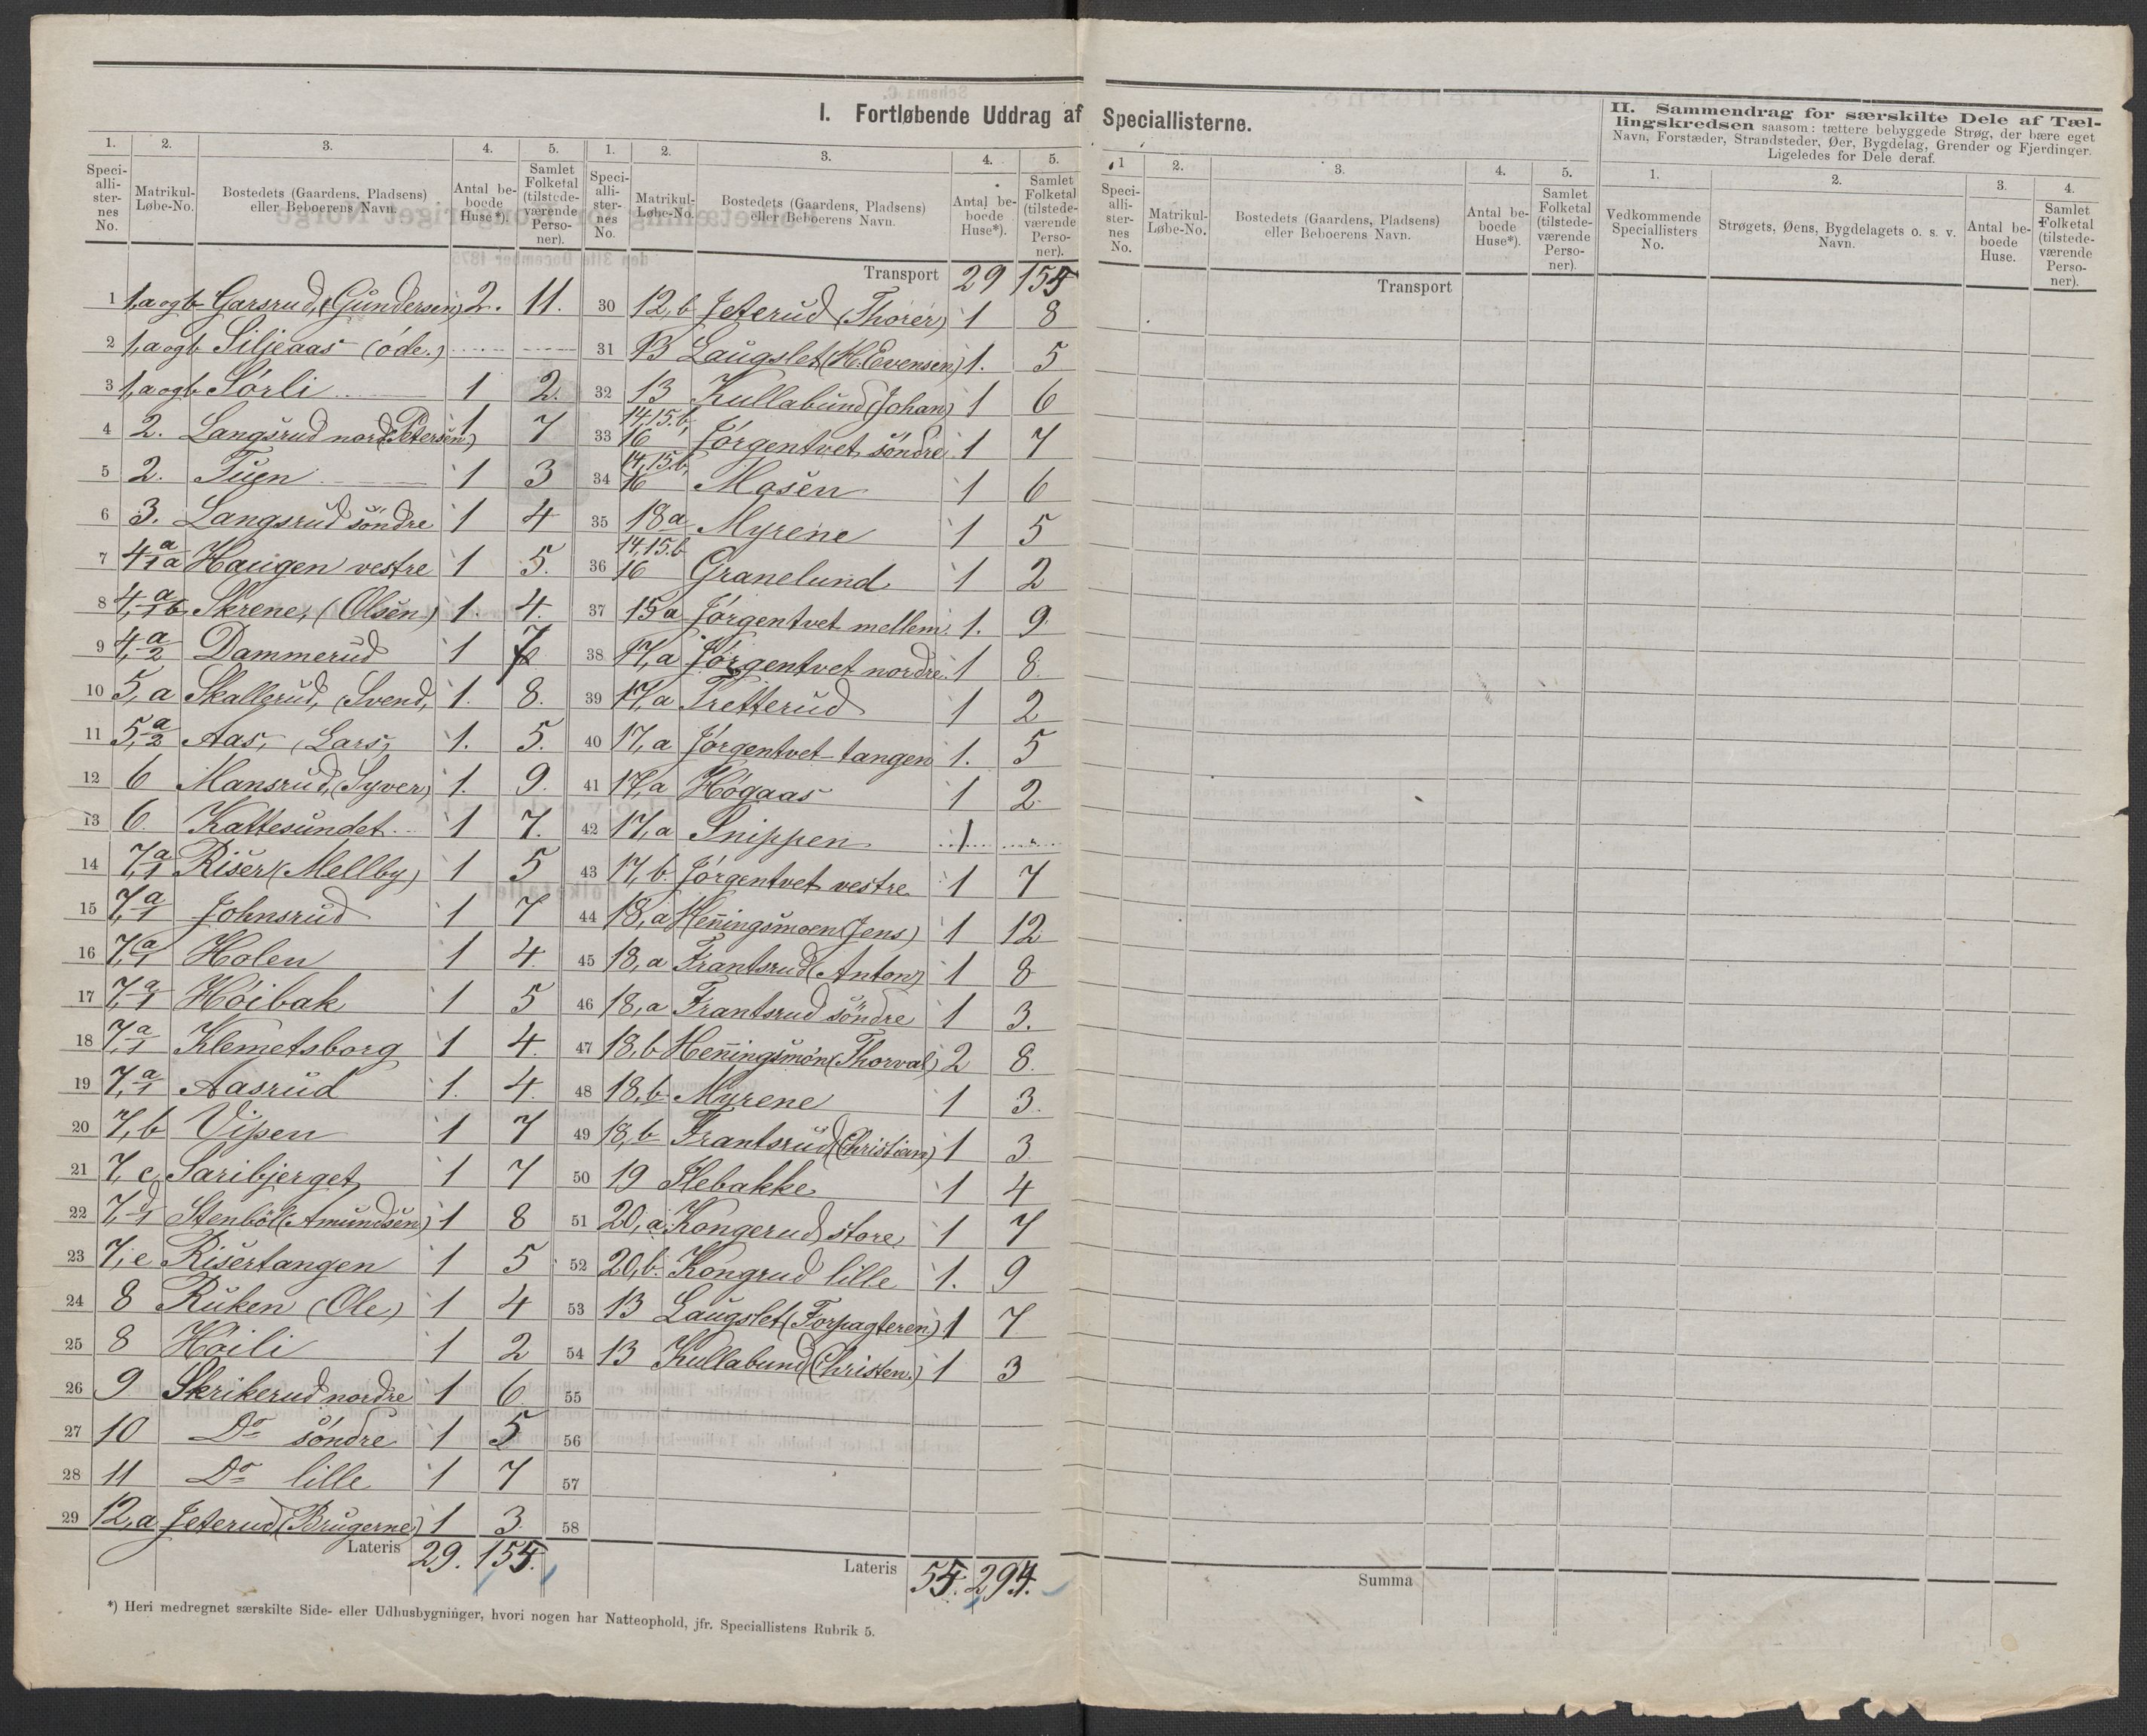 I. Fortløbende Uddrag af Speciallisterne.
1. 2. 3. 4. 5.
Speciallisternes No. Matrikul-Løbe-No. Bostedets (Gaardens, Pladsens) eller Beboerens Navn. Antal beboede Huse*). Samlet Folketal (tilstedeværende Personer).
1 1,a og b Garsrud, (Gundersen) 2. 11.
2 1,a og b Siljeaas (öde.)
3 1,a og b Sörli 1 2.
4 2. Langsrud nord (Petersen) 1 7
5 2. Tuen 1 3
6 3. Langsrud söndre 1 4
7 4 a/1a Haugen vestre 1 5.
8 4, a/1b Skrene, (Olsen) 1. 4.
9 4, a/2 Dammerud 1 7
10 5, a Skallerud, (Svend, 1. 8.
11 5, a/2 Aas, (Lars, 1. 5.
12 6 Mansrud, (Syver) 1. 9.
13 6. Kattesundet 1 7.
14 7, a/1 Riser (Mellby) 1 5
15 7, a/1 Johnsrud 1 7
16 7, a/1 Holen 1 4.
17 7, a/1 Höibak 1 5
18 7, a/1 Klemetsborg 1 4.
19 7, a/1 Aasrud 1. 4.
20 7, b Vipen 1 7
21 7, c Saribjerget 1 7
22 7, d/1 Stenböl (Amundsen) 1 8
23 7, e Risertangen 1 5
24 8 Ruken (Ole) 1 4
25 8 Höili 1 2
26 9 Skrikerud nordre 1 6
27 10 Do söndre 1 5
28 11 Do lille 1 7
29 12,a Jeterud (Brugerne) 1 3
Lateris 29. 154.
1. 2. 3. 4. 5.
Speciallisternes No. Matrikul-Løbe-No. Bostedets (Gaardens, Pladsens) eller Beboerens Navn. Antal beboede Huse*). Samlet Folketal (tilstedeværende Personer).
Transport 29 154
30 12, b Jeterud (Thorer) 1 8
31 13 Laugslet (H. Evensen) 1. 5
32 13 Kullabund (Johan) 1 6
33 14, 15.b, 16 Jörgentvet söndre 1 7
34 14, 15.b, 16 Mosen 1 6
35 18a Myrene 1 5
36 14, 15.b 16 Granelund 1 2
37 15 a Jörgentvet mellem 1. 9
38 17, a Jörgentvet nordre 1 8.
39 17, a Tretterud 1 2
40 17, a Jörgentvet-tangen 1. 5
41 17, a Högaas 1 2
42 17, a Snippen 1
43 17, b Jörgentvet vestre 1 7
44 18, a Henningsmoen (Jens) 1 12
45 18, a Frantsrud (Anton) 1 8
46 18, a Frantsrud söndre 1 3.
47 18, b Henningsmön (Thorval) 2 8.
48 18, b Myrene 1 3.
49 18, b Frantsrud (Christian) 1 3
50 19 Slebakke 1 4
51 20, a Kongerud store 1 7
52 20, b. Kongrud lille 1. 9
53 13 Laugslet (Forpagteren) 1 7
54 13 Kullabund (Christen.) 1 3
55
56
57
58
Lateris 55. 294.
*) Heri medregnet særskilte Side- eller Udhusbygninger, hvori nogen har Natteophold, jfr. Speciallistens Rubrik 5.
1 2. 3. 4. 5.
Speciallisternes No. Matrikul-Løbe-No. Bostedets (Gaardens, Pladsens) eller Beboerens Navn. Antal beboede Huse*). Samlet Folketal (tilstedeværende Personer).
Transport
Summa
II. Sammendrag for særskilte Dele af Tællingskredsen saasom: tættere bebyggede Strøg, der bære eget Navn, Forstæder, Strandsteder, Øer, Bygdelag, Grender og Fjerdinger. Ligeledes for Dele deraf.
1. 2. 3. 4.
Vedkommende Speciallisters No. Strøgets, Øens, Bygdelagets o. s. v. Navn. Antal beboede Huse. Samlet Folketal (tilstedeværende Personer).